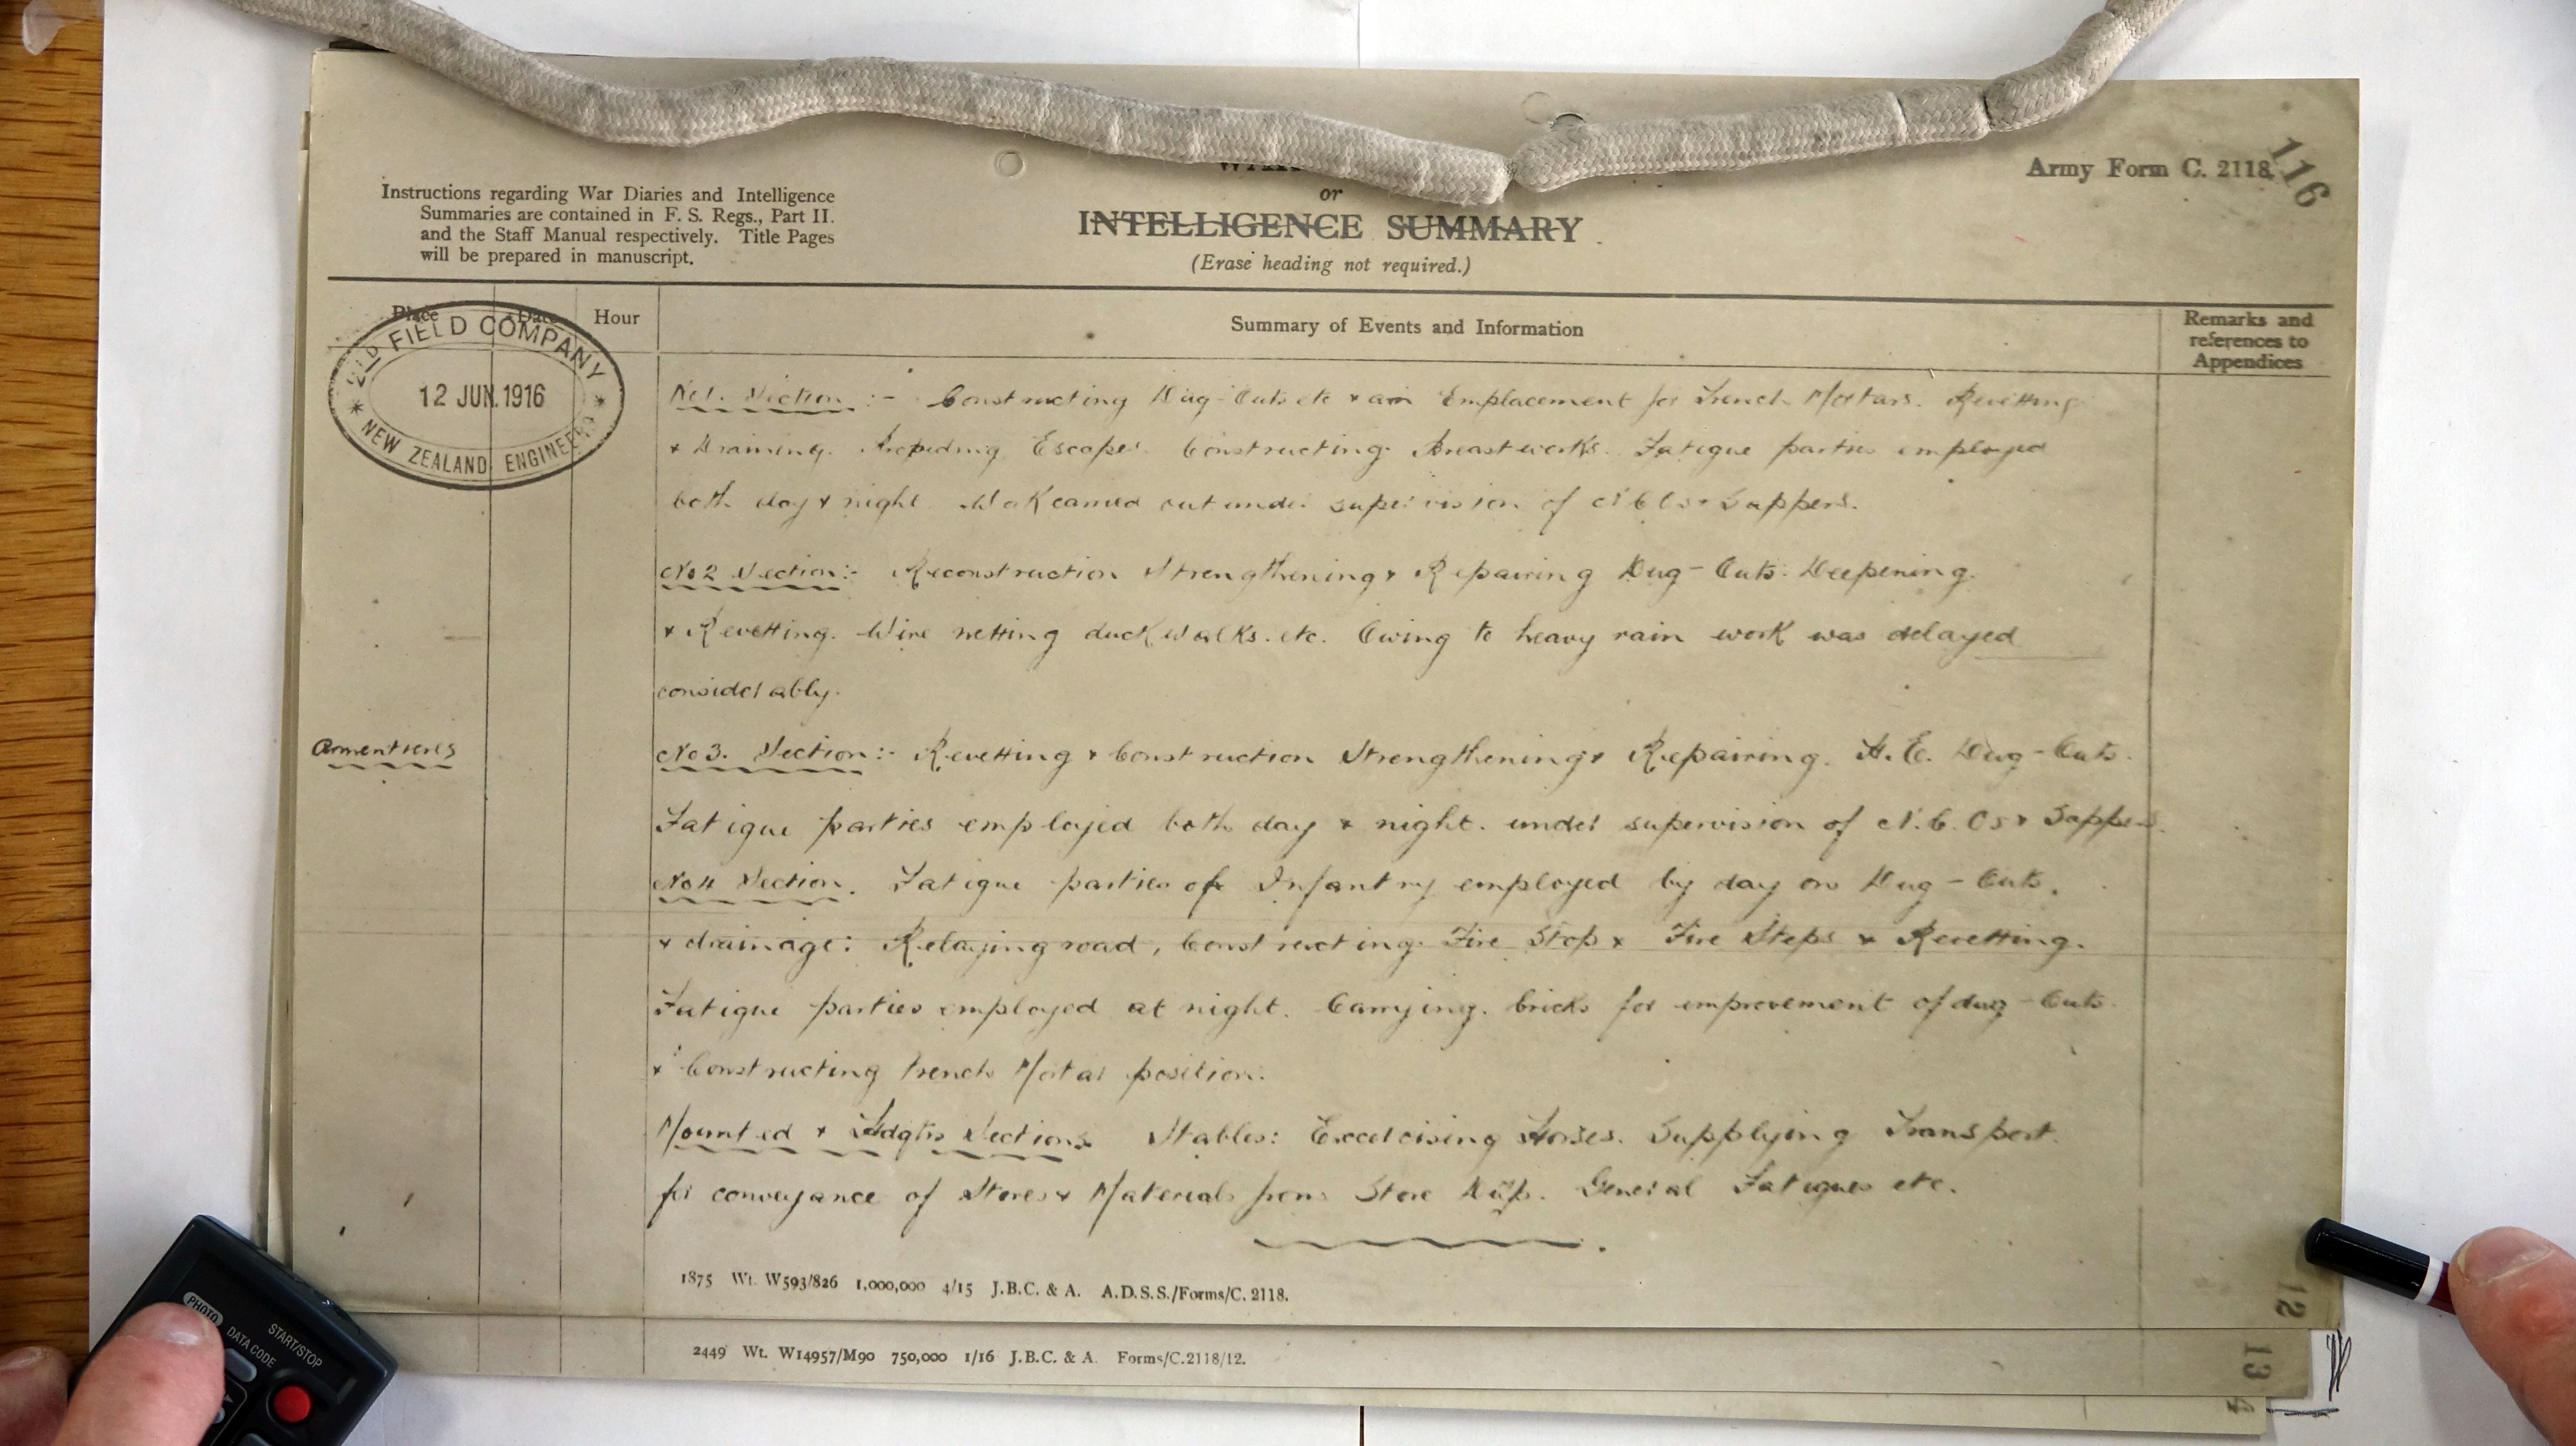 Army Form C. 2118
116
Instructions regarding War Diaries and Intelligence
Summaries are contained in F. S. Regs., Part II.
and the Staff Manual respectively. Title Pages
will be prepared in manuscript.
or
INTELLIGENCE SUMMARY
(Erase heading not required.)
Place
Date
Hour
Summary of Events and Information
Remarks and
references to
Appendices
2ND FIELD COMPANY
12 JUN. 1916
NEW ZEALAND ENGINEERS
No1. Section :- Constructing Dug-Outs etc & an Emplacement for Trench Mortars. Revetting
& Draining. Escapes. Constructing. Breastworks. Fatigue parties employed
both day & night. Work carried out under supervision of N C Os & Sappers.
No2 Section:- Reconstruction Strengthening & Repairing Dug-Outs. Deepening.
& Revetting. Wire netting duckwalks. etc. Owing to heavy rain work was delayed
considerably.
Armentieres
No3. Section:- Revetting & Construction Strengthening & Repairing. H.E. Dug-Outs.
Fatigue parties employed both day & night. under supervision of N.C.Os & Sappers.
No4 Section. Fatigue parties of Infantry employed by day on Dug-Outs.
& drainage: Relaying road, Constructing Fire Stop & Fire Steps & Revetting.
Fatigue parties employed at night. Carrying. bricks for improvement of dug-Outs
& Constructing Trench Mortar position.
Mounted & Hdqtrs Sections Stables: Excercising Horses. Supplying Transport.
for conveyance of Stores & Materials from Store General Fatigues etc.
1875 Wt. W593/826 1,000,000 4/15 J.B.C. & A. A.D.S.S./Forms/C. 2118.
12
2449 Wt. W14957/M90 750,000 1/16 J.B.C. & A. Forms/C.2118/12.
13
PHOTO
DATA CODE
START/STOP